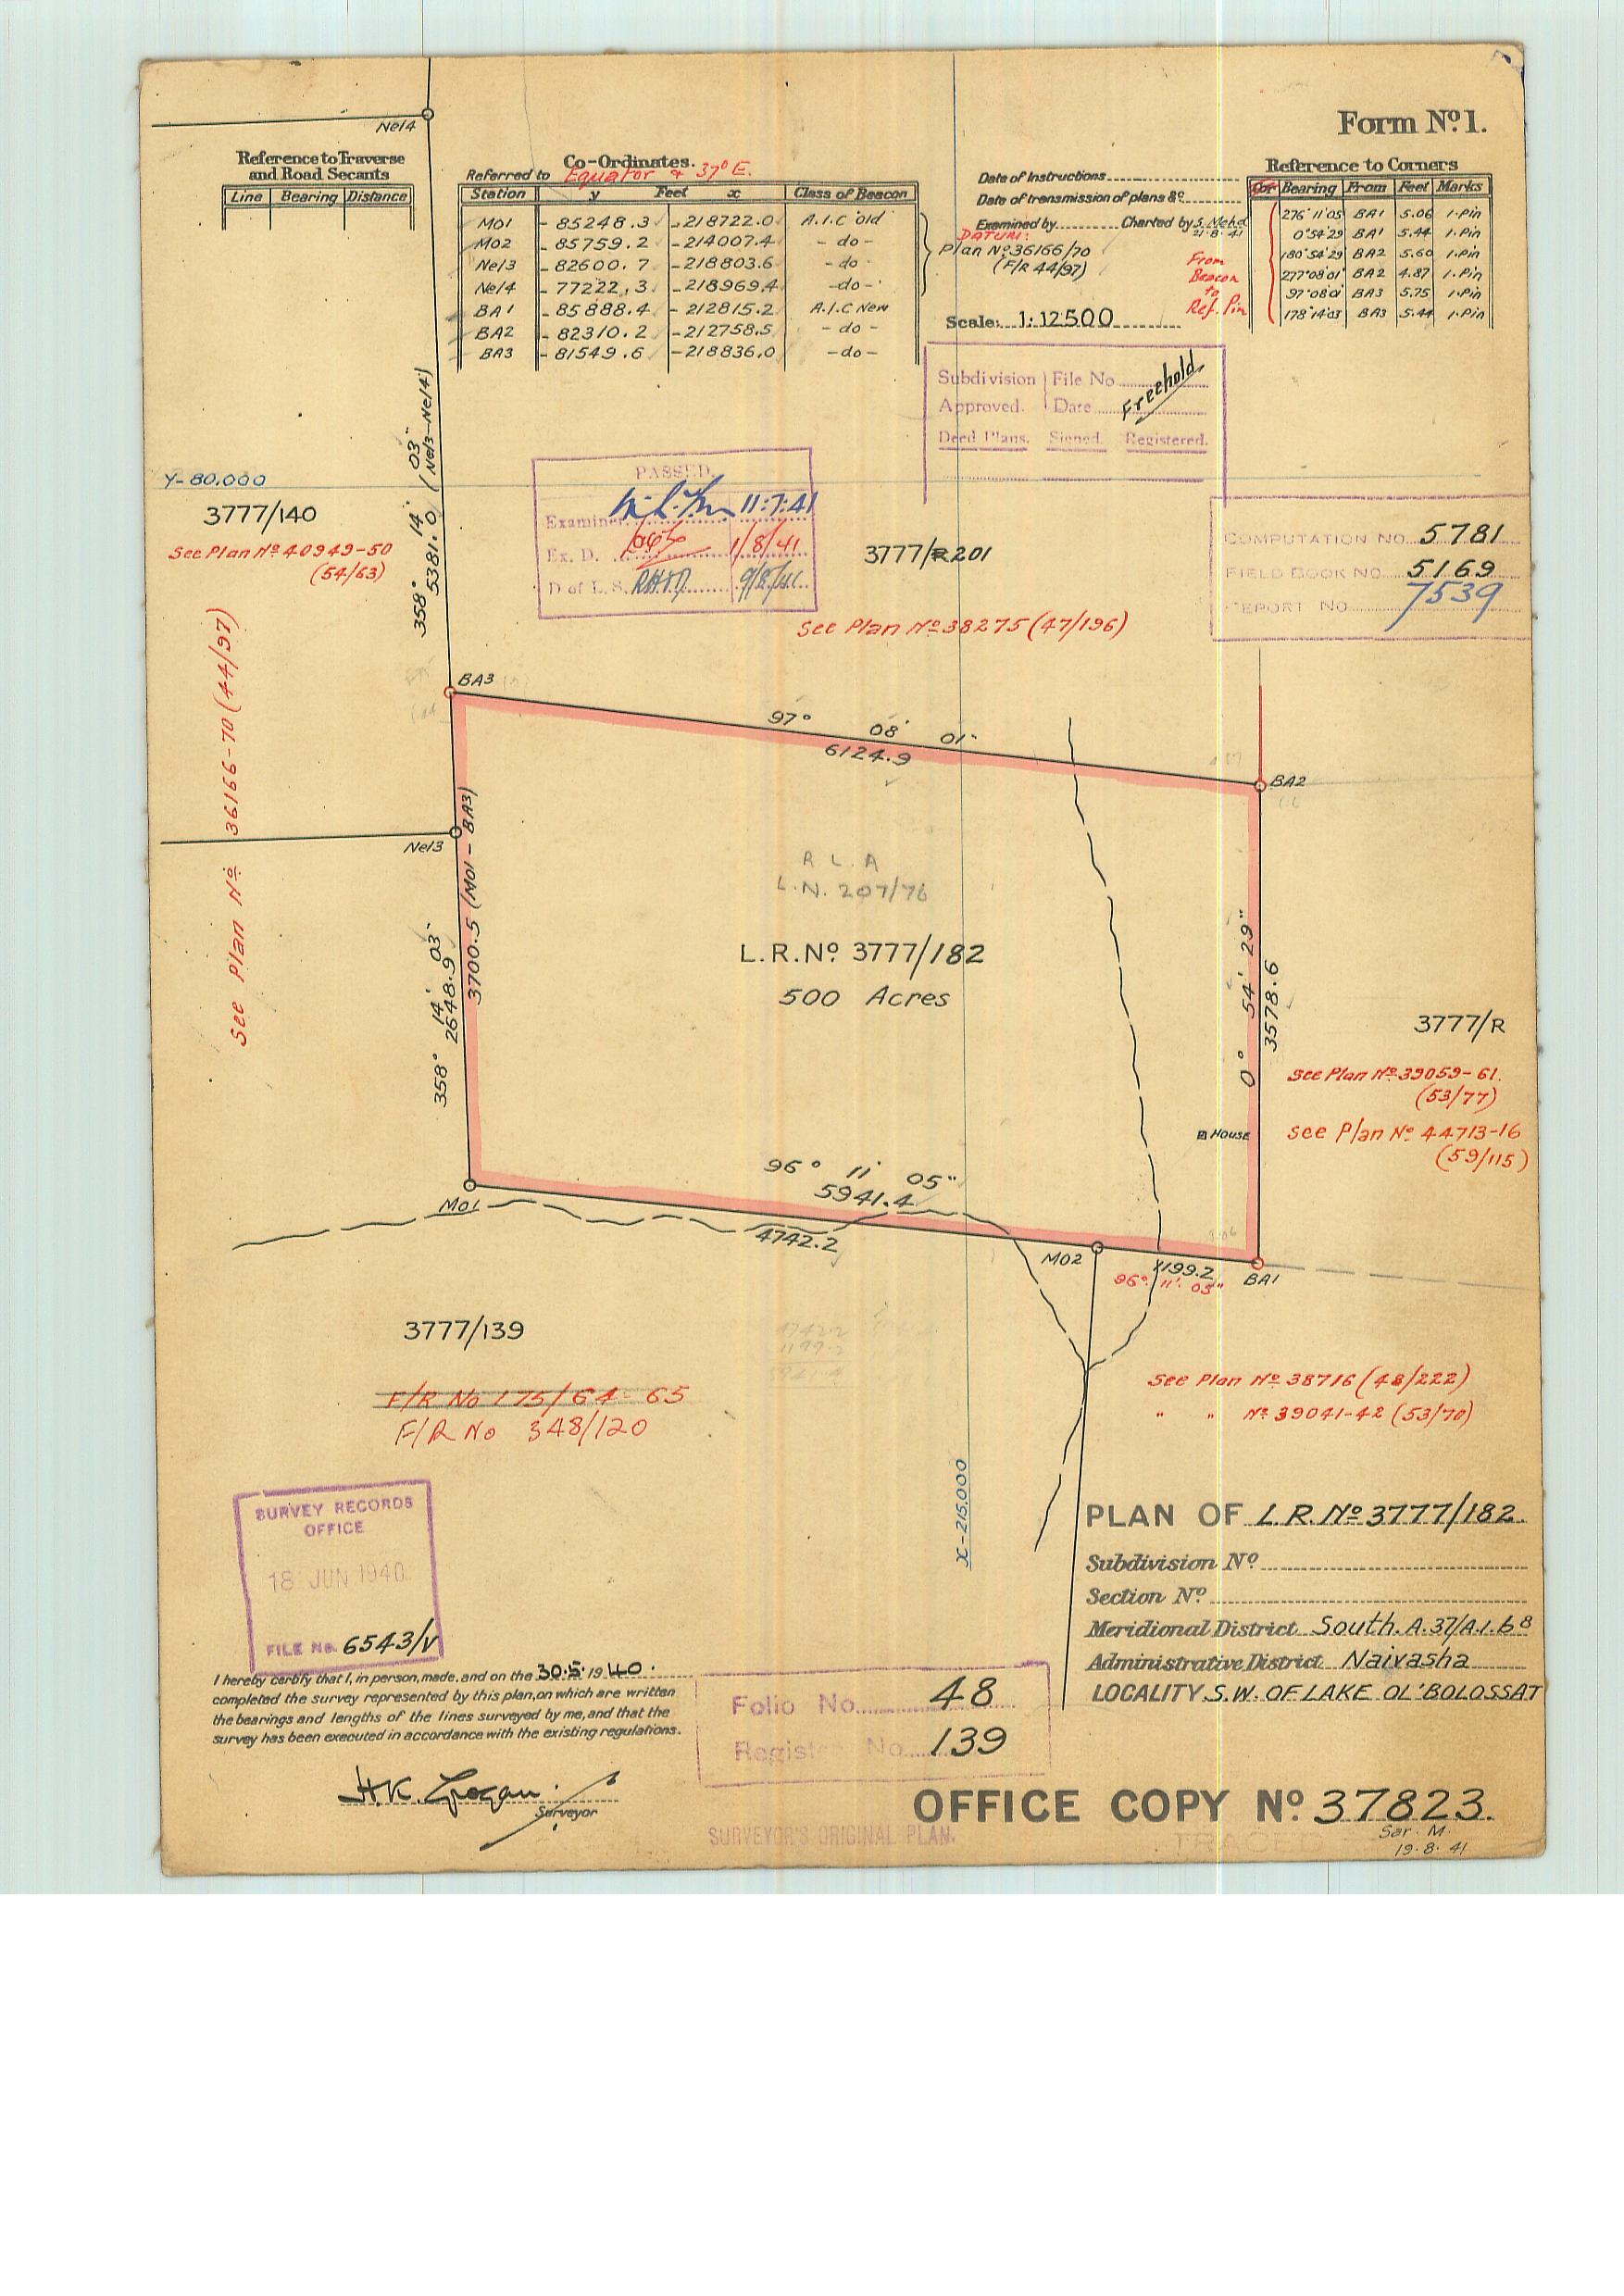 Form Nº1.
Ne14
Reference to Traverse
and Road Secants
Line Bearing Distance
Co-Ordinates.
Referred to Equator & 37° E.
Station y Feet x Class of Beacon
M01 - 85248.3 -218722.0 A.I.C old
M02 - 85759.2 -214007.4 - do -
Ne13 - 82600.7 -218803.6 - do -
Ne14 - 77222.3 -218969.4 - do -
BA1 - 85888.4 -212815.2 A.I.C New
BA2 - 82310.2 -212758.5 - do -
BA3 - 81549.6 -218836.0 - do -
Date of Instructions
Date of transmission of plans &c
Examined by Charted by S. Mehd
21.8.41
DATUM:
Plan Nº36166/70
(F/R 44/97)
From
Beacon
to
Ref. Pin
Scale: 1:12500
Reference to Corners
Bearing From Feet Marks
276°11'05 BA1 5.06 1.Pin
0°54'29 BA1 5.44 1.Pin
180°54'29 BA2 5.60 1.Pin
277°08'01 BA2 4.87 1.Pin
97°08'01 BA3 5.75 1.Pin
178°14'03 BA3 5.44 1.Pin
Subdivision File No
Approved. Date
Freehold
Deed Plans. Signed. Registered.
358° 14' 03"
5381.0 (Ne13-Ne14)
Y-80,000
3777/140
See Plan Nº 40949-50
(54/63)
PASSED.
Examiner 11:7:41
Ex. D. 1/8/41
D of L.S. 9/8/41.
3777/R201
See Plan Nº38275 (47/196)
COMPUTATION NO. 5781
FIELD BOOK NO. 5169
REPORT NO. 7539
See Plan Nº 36166-70 (44/97)
BA3
97° 08' 01"
6124.9
BA2
Ne13
3700.5 (M01 - BA3)
358° 14' 03"
2648.9
R L A
L.N. 207/76
L.R.Nº 3777/182
500 Acres
0° 54' 29"
3578.6
3777/R
See Plan Nº 39059-61.
(53/77)
See Plan Nº 44713-16
(59/115)
HOUSE
96° 11' 05"
5941.4
M01
4742.2
M02
1199.2
96° 11' 05"
BA1
3777/139
4742.2
1199.2
5941.4
F/R No 175/64-65
F/R No 348/120
See Plan Nº 38716 (48/222)
" " Nº 39041-42 (53/70)
X-215,000
SURVEY RECORDS
OFFICE
18 JUN 1940
FILE No. 6543/V
PLAN OF L.R. Nº 3777/182.
Subdivision Nº
Section Nº
Meridional District South. A.37/A.1.b8
Administrative District Naivasha
LOCALITY S.W. OF LAKE OL'BOLOSSAT
I hereby certify that I, in person, made, and on the 30.5.1940.
completed the survey represented by this plan, on which are written
the bearings and lengths of the lines surveyed by me, and that the
survey has been executed in accordance with the existing regulations.
Folio No. 48
Register No. 139
H.K. Grogan
Surveyor
SURVEYOR'S ORIGINAL PLAN.
OFFICE COPY Nº 37823.
TRACED
Sar. M.
19.8.41